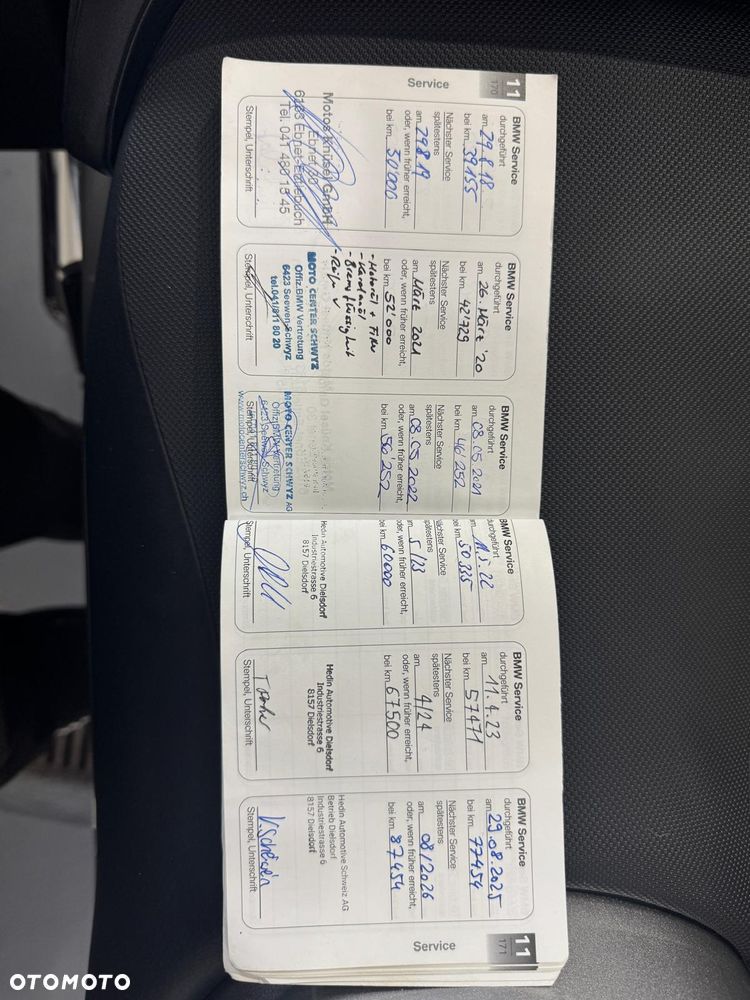 Service
11
170
BMW Service
durchgeführt
am 29.8.18
bei km 39'155
Nächster Service
spätestens
am 29.8.19
oder, wenn früher erreicht,
bei km 50'000
Motos Knüsel GmbH
Ebnet
6163 Ebnet-Entlebuch
Tel. 041 480 13 45
Stempel, Unterschrift
BMW Service
durchgeführt
am 26. März '20
bei km 42'729
Nächster Service
spätestens
am März 2021
oder, wenn früher erreicht,
bei km 52'000
- Motoröl + Filter
- Kardanöl
- Bremsflüssigkeit
MOTO CENTER SCHWYZ
Offiz.BMW Vertretung
6423 Seewen-Schwyz
tel.041/811 80 20
Stempel, Unterschrift
BMW Service
durchgeführt
am 03.05.2021
bei km 46'252
Nächster Service
spätestens
am 03.05.2022
oder, wenn früher erreicht,
bei km 56'252
MOTO CENTER SCHWYZ AG
Offiz.BMW Vertretung
6423 Seewen-Schwyz
www.motocenterschwyz.ch
Stempel, Unterschrift
BMW Service
durchgeführt
am 11.5.22
bei km 50335
Nächster Service
spätestens
am 5/23
oder, wenn früher erreicht,
bei km 60000
Hedin Automotive Dielsdorf
Industriestrasse 6
8157 Dielsdorf
Stempel, Unterschrift
BMW Service
durchgeführt
am 11.4.23
bei km 57471
Nächster Service
spätestens
am 4/24
oder, wenn früher erreicht,
bei km 67500
Hedin Automotive Dielsdorf
Industriestrasse 6
8157 Dielsdorf
Stempel, Unterschrift
BMW Service
durchgeführt
am 29.08.2025
bei km 77454
Nächster Service
spätestens
am 08/2026
oder, wenn früher erreicht,
bei km 87454
Hedin Automotive Schweiz AG
Betrieb Dielsdorf
Industriestrasse 6
8157 Dielsdorf
Stempel, Unterschrift
Service
11
171
OTOMOTO